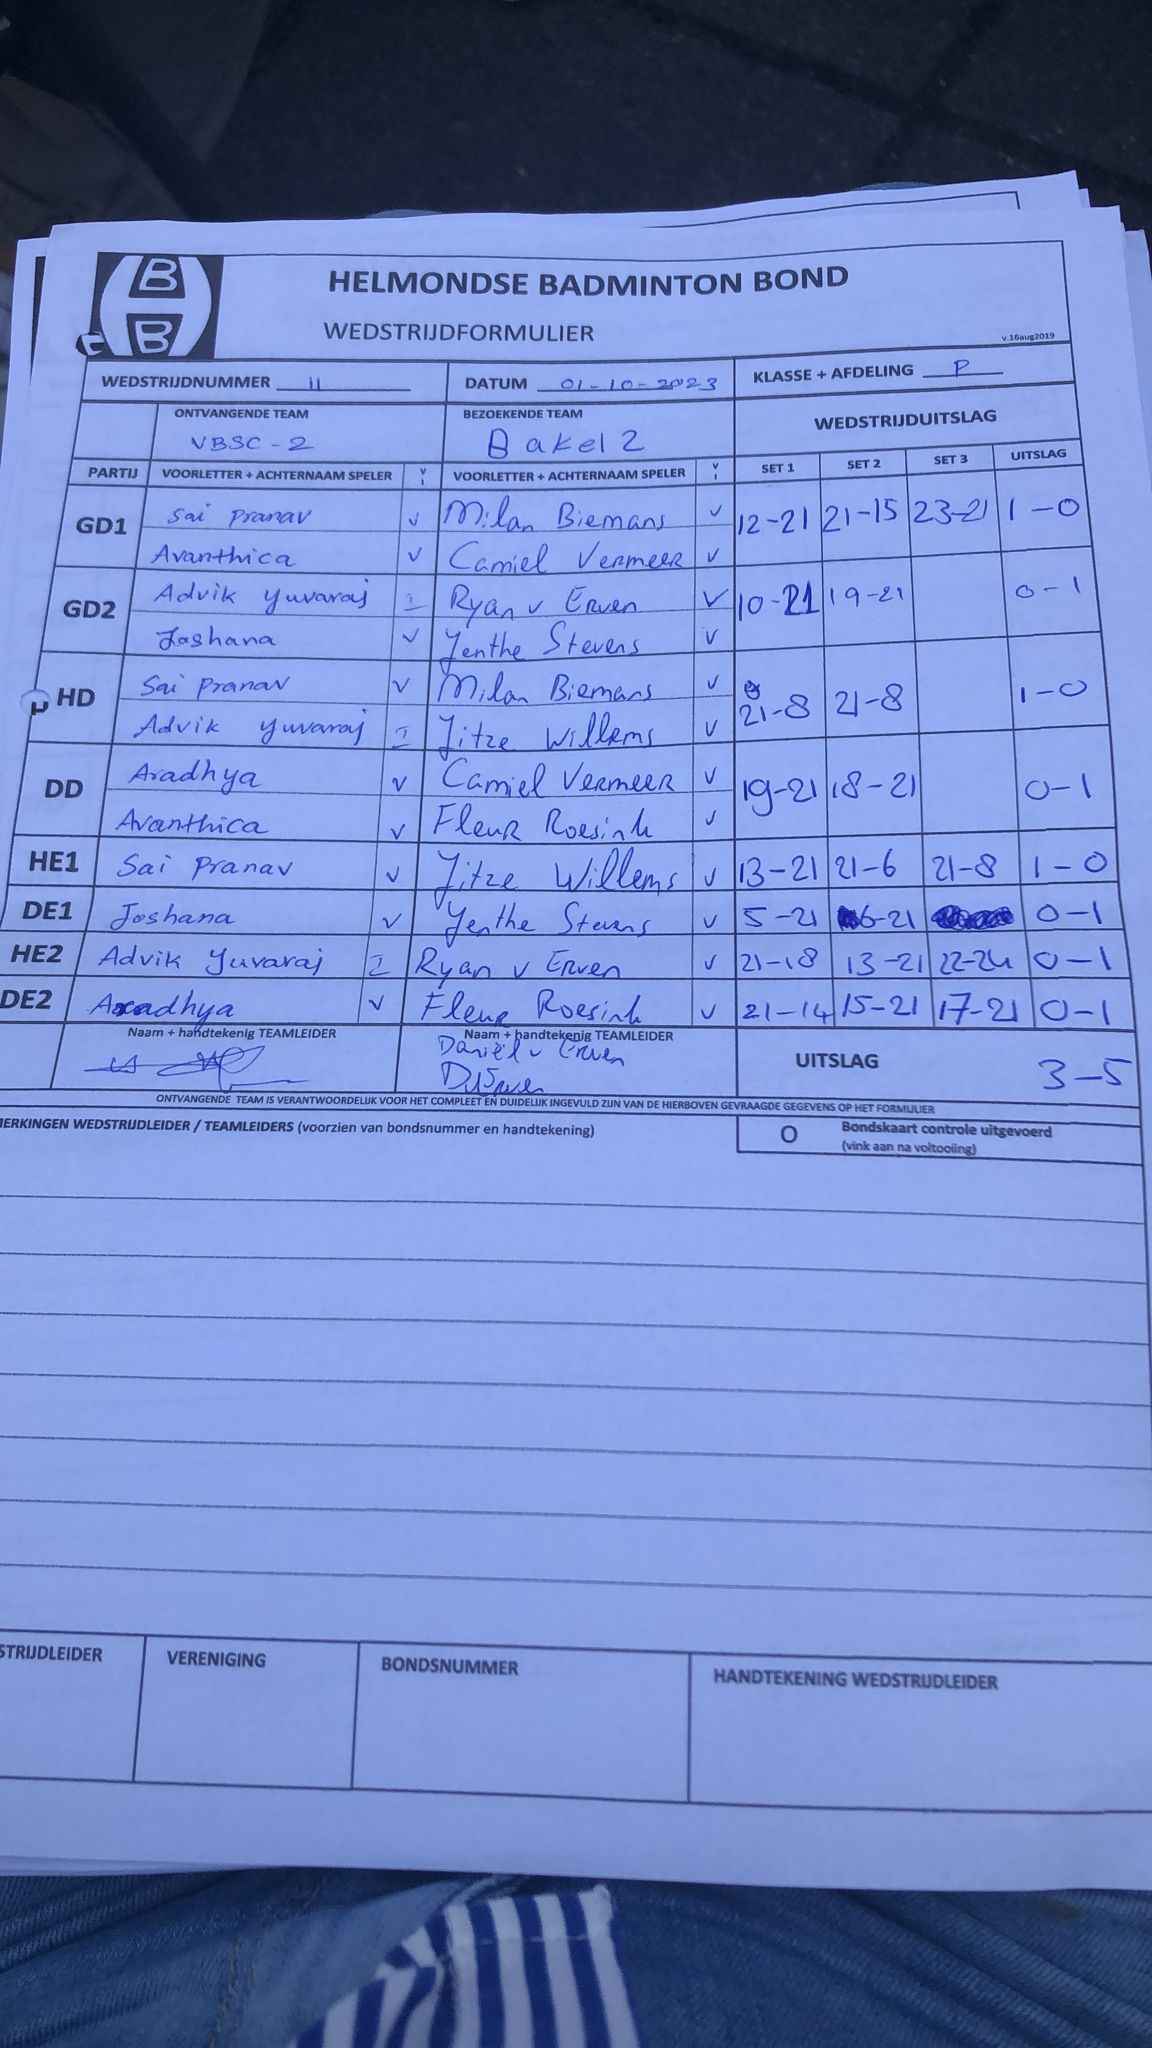 B
B
HELMONDSE BADMINTON BOND
WEDSTRIJDFORMULIER
v.16aug2019
WEDSTRIJDNUMMER 11 DATUM 01-10-2023 KLASSE + AFDELING P
ONTVANGENDE TEAM BEZOEKENDE TEAM WEDSTRIJDUITSLAG
VBSC-2 Bakel 2
PARTIJ VOORLETTER + ACHTERNAAM SPELER V I VOORLETTER + ACHTERNAAM SPELER V I SET 1 SET 2 SET 3 UITSLAG
GD1 Sai Pranav v Milan Biemans v 12-21 21-15 23-21 1-0
Avanthica v Camiel Vermeer v
GD2 Advik Yuvaraj I Ryan v Erven v 10-21 19-21 0-1
Joshana v Yenthe Stevens v
HD Sai Pranav v Milan Biemans v 21-8 21-8 1-0
Advik Yuvaraj I Jitze Willems v
DD Aradhya v Camiel Vermeer v 19-21 18-21 0-1
Avanthica v Fleur Roesink v
HE1 Sai Pranav v Jitze Willems v 13-21 21-6 21-8 1-0
DE1 Joshana v Yenthe Stevens v 5-21 6-21 0-1
HE2 Advik Yuvaraj I Ryan v Erven v 21-18 13-21 22-24 0-1
DE2 Aradhya v Fleur Roesink v 21-14 15-21 17-21 0-1
Naam + handtekenig TEAMLEIDER Naam + handtekenig TEAMLEIDER
Daniël v Erven
UITSLAG 3-5
ONTVANGENDE TEAM IS VERANTWOORDELIJK VOOR HET COMPLEET EN DUIDELIJK INGEVULD ZIJN VAN DE HIERBOVEN GEVRAAGDE GEGEVENS OP HET FORMULIER
MERKINGEN WEDSTRIJDLEIDER / TEAMLEIDERS (voorzien van bondsnummer en handtekening)
O Bondskaart controle uitgevoerd
(vink aan na voltooiing)
STRIJDLEIDER VERENIGING BONDSNUMMER HANDTEKENING WEDSTRIJDLEIDER